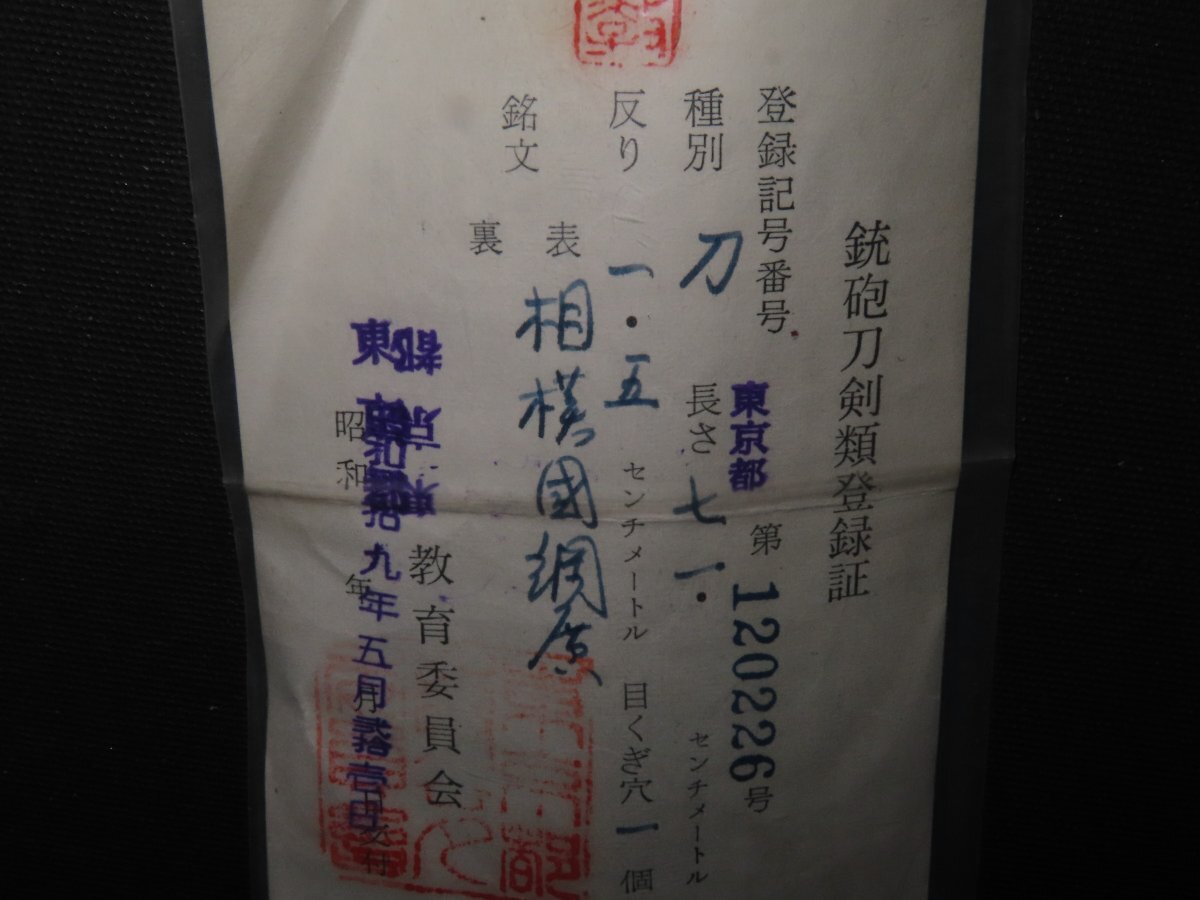 銃砲刀剣類登録証
登録記号番号 東京都 第120226号
種別 刀 長さ 七一・ センチメートル
反り 一・五 センチメートル 目くぎ穴 一 個
銘文 表 相模國綱廣
裏
東京都教育委員会
昭和 拾九年五月弐拾壱日交付